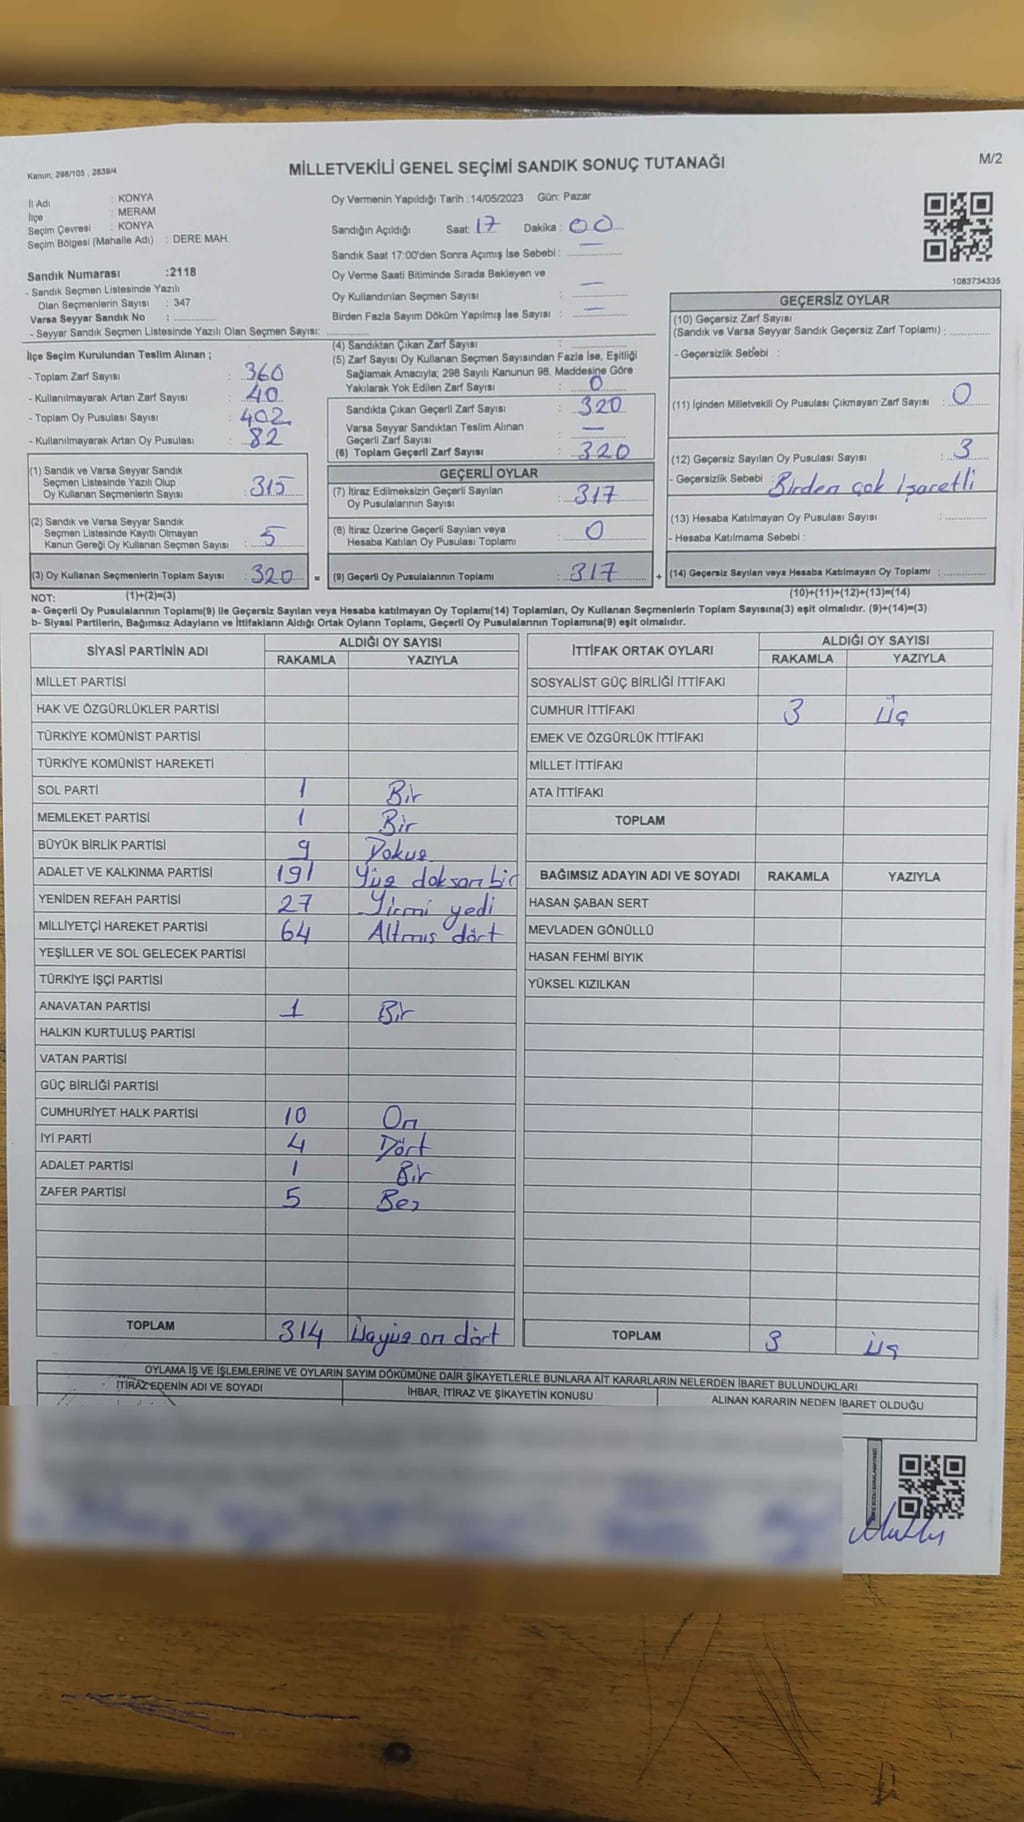 Kanun; 298/105 , 2839/4
MİLLETVEKİLİ GENEL SEÇİMİ SANDIK SONUÇ TUTANAĞI
M/2
İl Adı : KONYA
İlçe : MERAM
Seçim Çevresi : KONYA
Seçim Bölgesi (Mahalle Adı) : DERE MAH.
Sandık Numarası :2118
- Sandık Seçmen Listesinde Yazılı
Olan Seçmenlerin Sayısı : 347
Varsa Seyyar Sandık No :
- Seyyar Sandık Seçmen Listesinde Yazılı Olan Seçmen Sayısı:
Oy Vermenin Yapıldığı Tarih : 14/05/2023 Gün: Pazar
Sandığın Açıldığı Saat: 17 Dakika : 00
Sandık Saat 17:00'den Sonra Açımış İse Sebebi : —
Oy Verme Saati Bitiminde Sırada Bekleyen ve
Oy Kullandırılan Seçmen Sayısı : —
Birden Fazla Sayım Döküm Yapılmış İse Sayısı : —
1083734335
İlçe Seçim Kurulundan Teslim Alınan ;
- Toplam Zarf Sayısı : 360
- Kullanılmayarak Artan Zarf Sayısı : 40
- Toplam Oy Pusulası Sayısı : 402
- Kullanılmayarak Artan Oy Pusulası : 82
(1) Sandık ve Varsa Seyyar Sandık
Seçmen Listesinde Yazılı Olup
Oy Kullanan Seçmenlerin Sayısı : 315
(2) Sandık ve Varsa Seyyar Sandık
Seçmen Listesinde Kayıtlı Olmayan
Kanun Gereği Oy Kullanan Seçmen Sayısı : 5
(3) Oy Kullanan Seçmenlerin Toplam Sayısı : 320 =
(4) Sandıktan Çıkan Zarf Sayısı :
(5) Zarf Sayısı Oy Kullanan Seçmen Sayısından Fazla İse, Eşitliği
Sağlamak Amacıyla; 298 Sayılı Kanunun 98. Maddesine Göre
Yakılarak Yok Edilen Zarf Sayısı : 0
Sandıkta Çıkan Geçerli Zarf Sayısı : 320
Varsa Seyyar Sandıktan Teslim Alınan
Geçerli Zarf Sayısı : —
(6) Toplam Geçerli Zarf Sayısı : 320
GEÇERLİ OYLAR
(7) İtiraz Edilmeksizin Geçerli Sayılan
Oy Pusulalarının Sayısı : 317
(8) İtiraz Üzerine Geçerli Sayılan veya
Hesaba Katılan Oy Pusulası Toplamı : 0
(9) Geçerli Oy Pusulalarının Toplamı : 317 +
GEÇERSİZ OYLAR
(10) Geçersiz Zarf Sayısı
(Sandık ve Varsa Seyyar Sandık Geçersiz Zarf Toplamı) :
- Geçersizlik Sebebi :
(11) İçinden Milletvekili Oy Pusulası Çıkmayan Zarf Sayısı : 0
(12) Geçersiz Sayılan Oy Pusulası Sayısı : 3
- Geçersizlik Sebebi : Birden çok işaretli
(13) Hesaba Katılmayan Oy Pusulası Sayısı :
- Hesaba Katılmama Sebebi :
(14) Geçersiz Sayılan veya Hesaba Katılmayan Oy Toplamı :
NOT: (1)+(2)=(3)
(10)+(11)+(12)+(13)=(14)
a- Geçerli Oy Pusulalarının Toplamı(9) ile Geçersiz Sayılan veya Hesaba katılmayan Oy Toplamı(14) Toplamları, Oy Kullanan Seçmenlerin Toplam Sayısına(3) eşit olmalıdır. (9)+(14)=(3)
b- Siyasi Partilerin, Bağımsız Adayların ve İttifakların Aldığı Ortak Oyların Toplamı, Geçerli Oy Pusulalarının Toplamına(9) eşit olmalıdır.
SİYASİ PARTİNİN ADI ALDIĞI OY SAYISI
RAKAMLA YAZIYLA
MİLLET PARTİSİ
HAK VE ÖZGÜRLÜKLER PARTİSİ
TÜRKİYE KOMÜNİST PARTİSİ
TÜRKİYE KOMÜNİST HAREKETİ
SOL PARTİ 1 Bir
MEMLEKET PARTİSİ 1 Bir
BÜYÜK BİRLİK PARTİSİ 9 Dokuz
ADALET VE KALKINMA PARTİSİ 191 Yüz doksan bir
YENİDEN REFAH PARTİSİ 27 Yirmi yedi
MİLLİYETÇİ HAREKET PARTİSİ 64 Altmış dört
YEŞİLLER VE SOL GELECEK PARTİSİ
TÜRKİYE İŞÇİ PARTİSİ
ANAVATAN PARTİSİ 1 Bir
HALKIN KURTULUŞ PARTİSİ
VATAN PARTİSİ
GÜÇ BİRLİĞİ PARTİSİ
CUMHURİYET HALK PARTİSİ 10 On
İYİ PARTİ 4 Dört
ADALET PARTİSİ 1 Bir
ZAFER PARTİSİ 5 Beş
TOPLAM 314 Üçyüz on dört
İTTİFAK ORTAK OYLARI ALDIĞI OY SAYISI
RAKAMLA YAZIYLA
SOSYALİST GÜÇ BİRLİĞİ İTTİFAKI
CUMHUR İTTİFAKI 3 Üç
EMEK VE ÖZGÜRLÜK İTTİFAKI
MİLLET İTTİFAKI
ATA İTTİFAKI
TOPLAM
BAĞIMSIZ ADAYIN ADI VE SOYADI RAKAMLA YAZIYLA
HASAN ŞABAN SERT
MEVLADEN GÖNÜLLÜ
HASAN FEHMİ BIYIK
YÜKSEL KIZILKAN
TOPLAM 3 Üç
OYLAMA İŞ VE İŞLEMLERİNE VE OYLARIN SAYIM DÖKÜMÜNE DAİR ŞİKAYETLERLE BUNLARA AİT KARARLARIN NELERDEN İBARET BULUNDUKLARI
İTİRAZ EDENİN ADI VE SOYADI İHBAR, İTİRAZ VE ŞİKAYETİN KONUSU ALINAN KARARIN NEDEN İBARET OLDUĞU